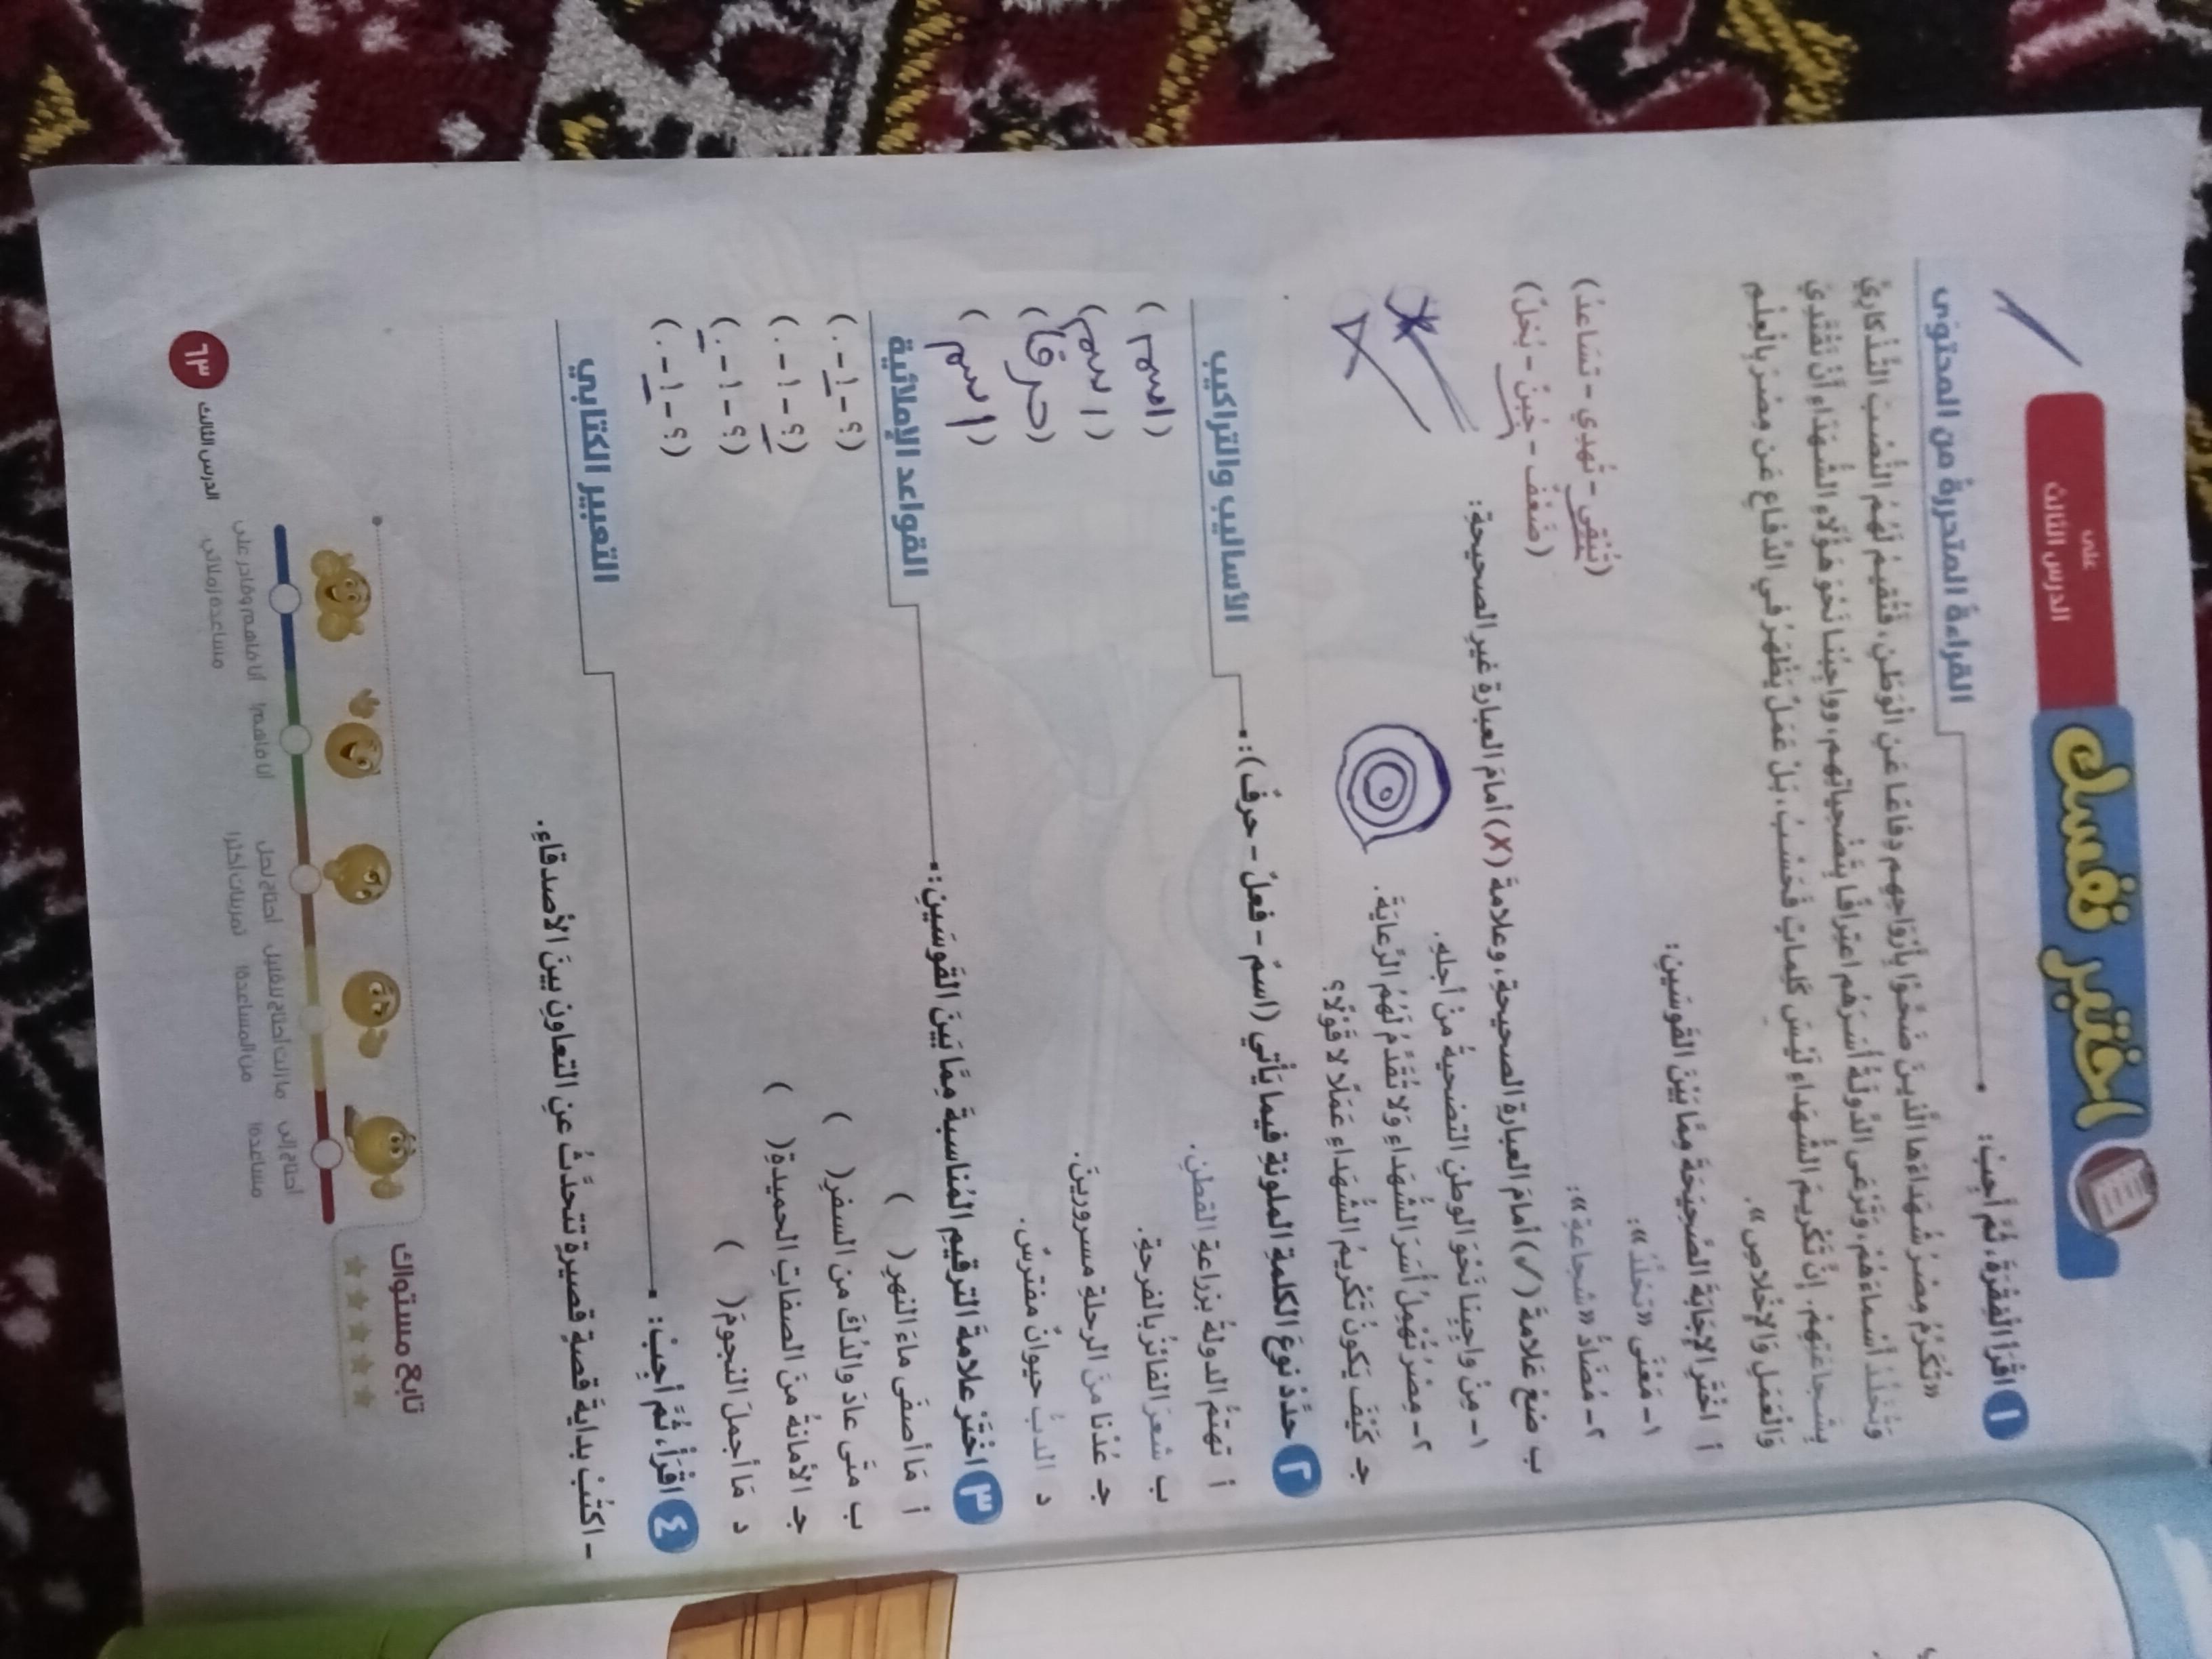 اختبر نفسك
على
الدرس الثالث
القراءة المتحررة من المحتوى
١ اقْرَأ الْفِقْرَةَ، ثُمَّ أَجِبْ:
«تُكَرِّمُ مِصْرُ شُهَدَاءَها الَّذِينَ ضَحَّوْا بِأَرْوَاحِهِم دِفَاعًا عَنِ الْوَطَنِ، فَتُقِيمُ لَهُمُ النُّصُبَ التَّذْكَارِيَّ
وَتُخَلِّدُ أَسْماءَهُمْ، وَتَرْعَى الدَّوْلَةُ أُسَرَهُم اعتِرافًا بِتَضْحِياتِهِم، وواجِبُنا نَحْوَ هَؤُلَاءِ الشُّهَدَاءِ أَنْ نَقْتَدِيَ
بِشَجاعَتِهِمْ. إِنَّ تَكْرِيمَ الشُّهَداءِ لَيْسَ كَلِماتٍ فَحَسْبُ، بَلْ عَمَلٌ يَظْهَرُ فِي الدِّفاعِ عَن مِصْرَ بِالْعِلْمِ
وَالْعَمَلِ وَالإِخْلاصِ».
أ اخْتَرِ الإِجَابَةَ الصَّحِيحَةَ مِمَّا بَيْنَ القَوسَينِ:
١- مَعْنَى «تُخَلِّدُ»: (تُبْقِي - تُهدِي - تُسَاعدُ)
٢- مُضَادُّ «شجاعةِ»: (ضَعْفٌ - جُبنٌ - بُخلٌ)
ب ضعْ عَلامةَ (✓) أمامَ العبارةِ الصحيحةِ، وعلامةَ (X) أمامَ العبارةِ غيرِ الصحيحةِ:
١- مِنْ واجِبِنا نَحْوَ الوطنِ التضحيةُ منْ أجلِهِ.
٢- مِصْرُ تُهْمِلُ أُسَرَ الشُّهَداءِ وَلا تُقَدِّمُ لَهُمُ الرِّعايَةَ.
جـ كَيْفَ يَكونُ تَكْريمُ الشُّهَداءِ عَمَلًا لا قَوْلًا؟
الأساليب والتراكيب
٢ حدِّدْ نوعَ الكلمةِ الملونةِ فيما يَأتي (اسمٌ - فعلٌ - حرفٌ):
أ تهتمُّ الدولةُ بزراعةِ القطنِ. (اسم)
ب شعرَ الفائزُ بالفرحةِ. (اسم)
جـ عُدْنا منَ الرحلةِ مسرورينَ. (حرف)
د الدبُّ حيوانٌ مفترسٌ. (اسم)
القواعد الإملائية
٣ اخْتَرْ علامةَ الترقيمِ المُناسبةَ مِمَّا بَينَ القَوسَينِ:
أ مَا أصفَى ماءَ النهرِ ( ) (؟ - ! - .)
ب متَى عادَ والدُكَ من السفرِ( ) (؟ - ! - .)
جـ الأمانةُ منَ الصفاتِ الحميدةِ( ) (؟ - ! - .)
د مَا أجملَ النجومَ( ) (؟ - ! - .)
التعبير الكتابي
٤ اقْرَأْ، ثُمَّ أَجِبْ:
- اكتُبْ بدايةَ قصةٍ قصيرةٍ تتحدَّثُ عنِ التعاونِ بينَ الأصدقاءِ.
تابع مستواك
أحتاج إلى
مساعدة!
ما زلت أحتاج للقليل
من المساعدة!
أحتاج لحل
تمرينات أكثر!
أنا فاهم!
أنا فاهم وقادر على
مساعدة زملائي
الدرس الثالث ٦٣